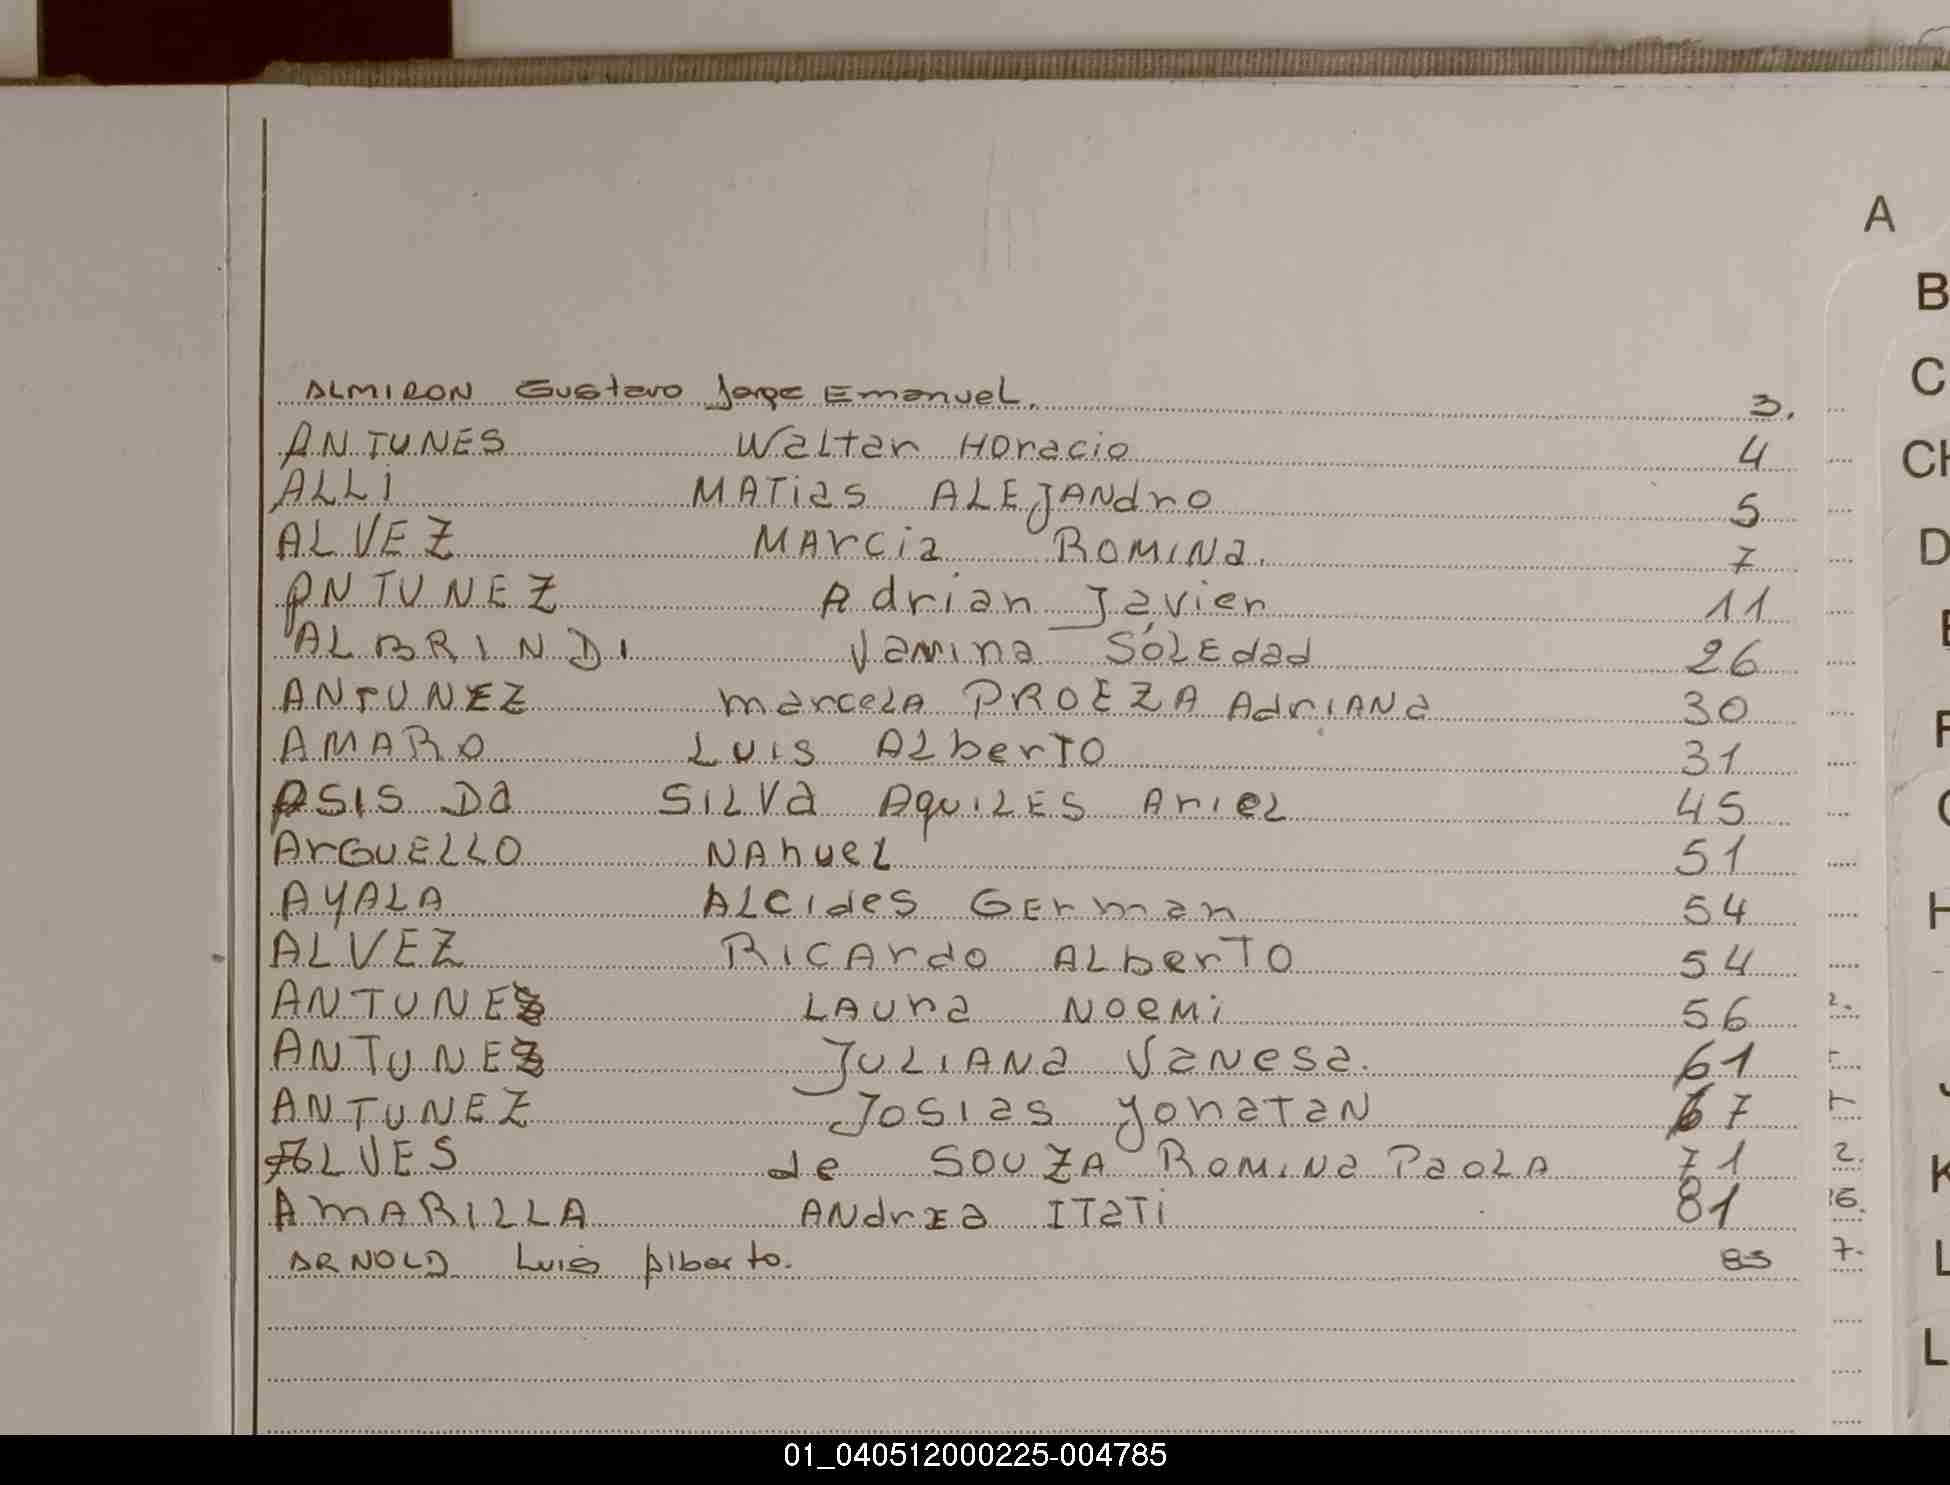 A
B
C
CH
D
ALMIRON Gustavo Jorge Emanuel. 3.
ANTUNES Waltar Horacio 4
ALLi MATias ALEJANdro 5
ALVEZ MArcia ROMINa. 7
ANTUNEZ Adrian Javier 11
ALBRINDI Vamina SOLEdad 26
ANTUNEZ marceLA PROEZA AdriANa 30
AMARO LUIS ALberTO 31
ASIS Da SILVa AquiLES AriEL 45
ArGUELLO NAhueL 51
AYALA ALCides GErman 54
ALVEZ RICArdo ALberTO 54
ANTUNEZ LAUra NOEMi 56
ANTUNEZ JULIANa VaNesa. 61
ANTUNEZ JOSIas YonaTaN 67
ALVES de SOUZA ROMINa PaOLA 71
AMARILLA ANdrEa ITaTi 81
ARNOLD Luis Alberto. 83
2.
2.
16.
7.
H
K
L
L
01_040512000225-004785